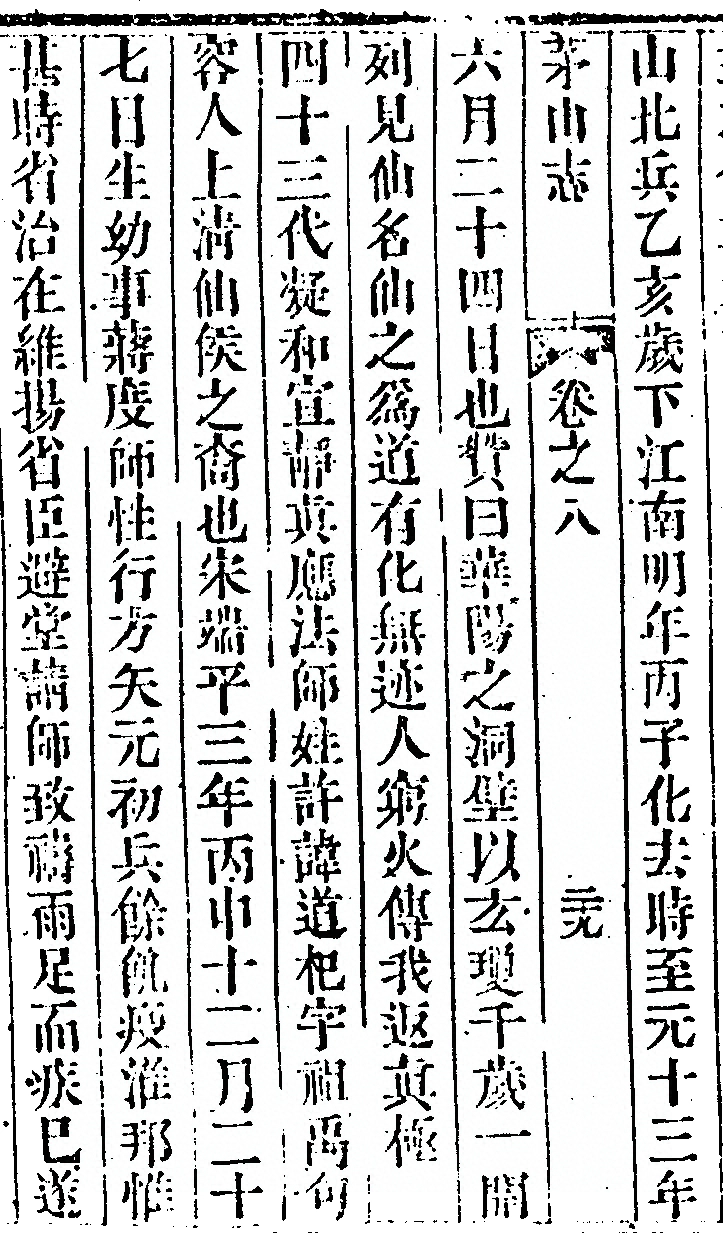 山北兵乙亥歲下江南明年丙子化去時至元十三年
茅山志 卷之八 二九
六月二十四日也贊曰華陽之洞壁以玄瓊千歲一開
列見仙名仙之爲道有化無迹人窮火傳我返真極
四十三代凝和宣靜真應法師姓許諱道杞字祖禹句
容人上清仙侯之裔也宋端平三年丙申十二月二十
七日生幼事蔣度師性行方矢元初兵餘饑疫淮邦惟
甚時省治在維揚省臣避堂請師致禱雨足而疾已遂